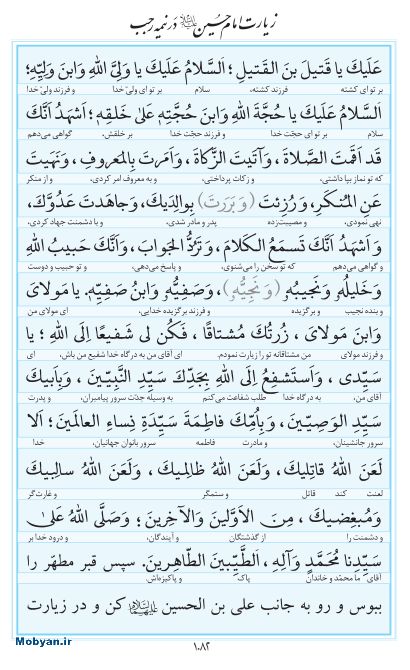 زیارت امام حسین علیه‌السلام در نیمه رجب
عَلَیکَ یا قَتیلَ بنَ القَتیلِ ؛ اَلسَّلامُ عَلَیکَ یا وَلِیَّ اللهِ وَابنَ وَلِیِّهِ؛
بر تو ای کشته فرزند کشته، سلام بر تو ای ولیّ خدا و فرزند ولیّ خدا
اَلسَّلامُ عَلَیکَ یا حُجَّةَ اللهِ وَابنَ حُجَّتِهِ عَلیٰ خَلقِهِ؛ اَشهَدُ اَنَّکَ
سلام بر تو ای حجّت خدا و فرزند حجّت خدا بر خلقش، گواهی می‌دهم
قَد اَقَمتَ الصَّلاةَ، وَآتَیتَ الزَّکاةَ، وَاَمَرتَ بِالمَعروفِ، وَنَهَیتَ
که تو نماز بپا داشتی، و زکات پرداختی، و به معروف امر کردی، و از منکر
عَنِ المُنکَرِ، وَرُزِئتَ (وَبَرَرتَ) بِوالِدَیکَ، وَجاهَدتَ عَدُوَّکَ،
نهی نمودی، و مصیبت‌زده پدر و مادر شدی، و با دشمنت جهاد کردی،
وَ اَشهَدُ اَنَّکَ تَسمَعُ الکَلامَ، وَتَرُدُّ الجَوابَ، وَاَنَّکَ حَبیبُ اللهِ
و گواهی می‌دهم که تو سخن را می‌شنوی، و پاسخ می‌دهی، و تو حبیب و دوست
وَخَلیلُهُ وَنَجیبُهُ (وَنَجِیُّهُ)، وَصَفِیُّهُ وَابنُ صَفِیِّهِ. یا مَولایَ
و بنده نجیب و برگزیده و فرزند برگزیده خدایی، ای مولای من
وَابنَ مَولایَ، زُرتُکَ مُشتاقًا، فَکُن لی شَفیعًا اِلَی اللهِ ؛ یا
و فرزند مولای من مشتاقانه تو را زیارت نمودم. ای آقای من به درگاه خدا شفیع من باش، ای
سَیِّدی ، وَاَستَشفِعُ اِلَی اللهِ بِجَدِّکَ سَیِّدِ النَّبِیّینَ، وَبِاَبیکَ
آقای من، به درگاه خدا طلب شفاعت می‌کنم به وسیله جدّت سرور پیامبران، و پدرت
سَیِّدِ الوَصِیّینَ، وَبِاُمِّکَ فاطِمَةَ سَیِّدَةِ نِساءِ العالَمینَ؛ اَلا
سرور جانشینان، و مادرت فاطمه سرور بانوان جهانیان، خدا
لَعَنَ اللهُ قاتِلیکَ، وَلَعَنَ اللهُ ظالِمیکَ، وَلَعَنَ اللهُ سالِبیکَ
لعنت کند قاتل و ستمگر و غارت‌گر
وَمُبغِضیکَ، مِنَ الاَوَّلینَ وَالآخِرینَ؛ وَصَلَّی اللهُ عَلیٰ
و دشمنت را از گذشتگان و آیندگان، و درود خدا بر
سَیِّدِنا مُحَمَّدٍ وَآلِهِ، الطَّیِّبینَ الطّاهِرینَ. سپس قبر مطهّر را
آقای ما محمّد و خاندان پاک و پاکیزه‌اش
ببوس و رو به جانب علی بن الحسین علیهماالسلام کن و در زیارت
۱۰۸۲
Mobyan.ir